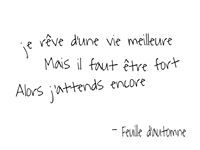 je rêve d'une vie meilleure
Mais il faut être fort
Alors j'attends encore
- Feuille d'automne